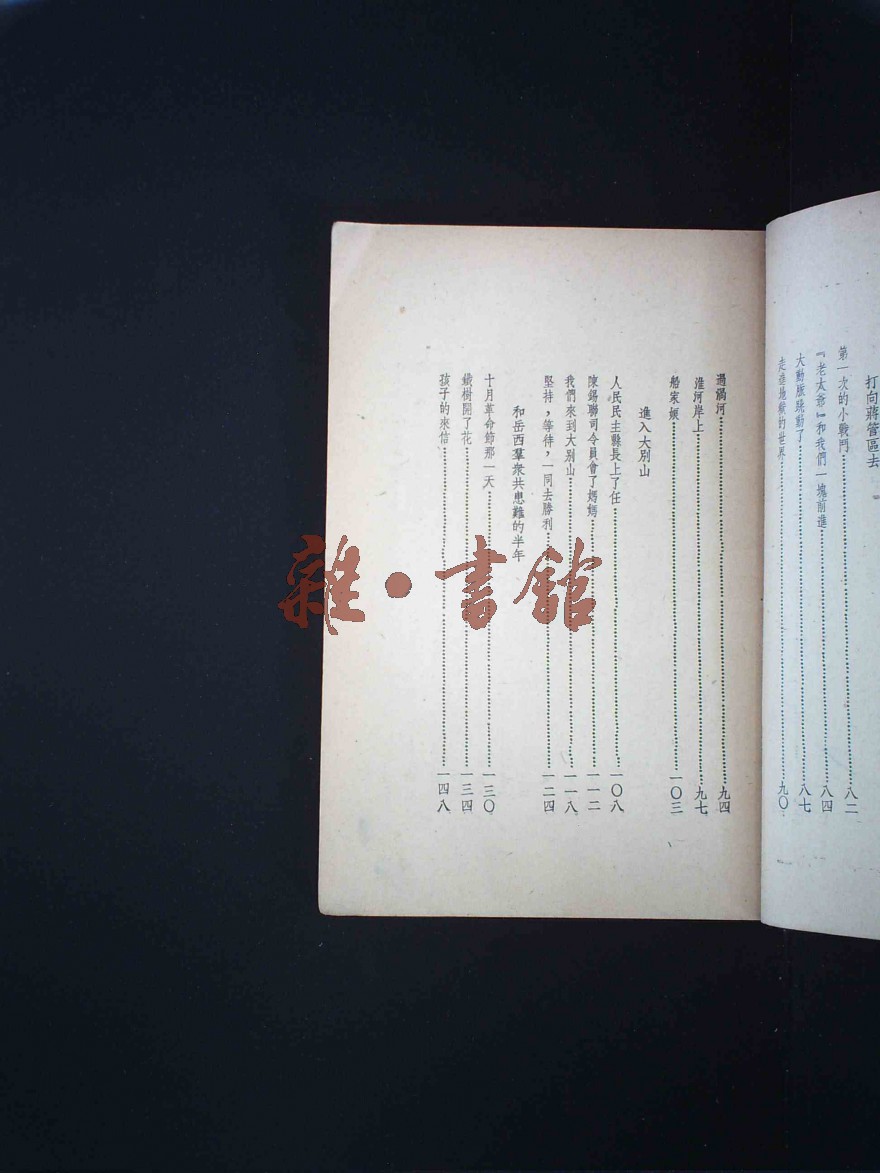 打向蔣管區去
第一次的小戰鬥……八二
『老太爺』和我們一塊前進……八四
大動脈跳動了……八七
走進地獄的世界……九〇
過渦河……九四
淮河岸上……九七
船家娘……一〇三
進入大別山
人民民主縣長上了任……一〇八
陳錫聯司令員會了媽媽……一一二
我們來到大別山……一一八
堅持，等待，一同去勝利……一二四
和岳西羣衆共患難的半年
十月革命節那一天……一三〇
鐵樹開了花……一三四
孩子的來信……一四八
雜·書館